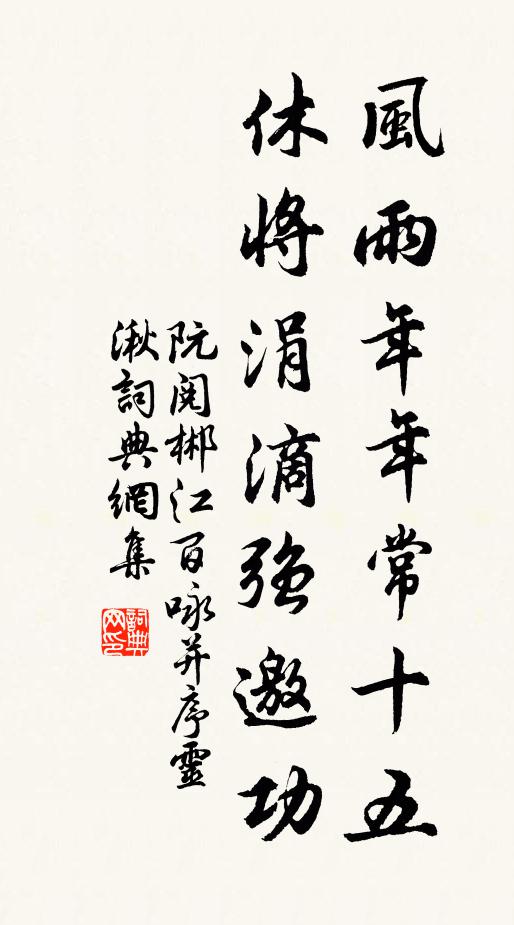 風雨年年常十五
休將涓滴強邀功
阮閱郴江百咏并序靈
湫詞典網集
詞典网印